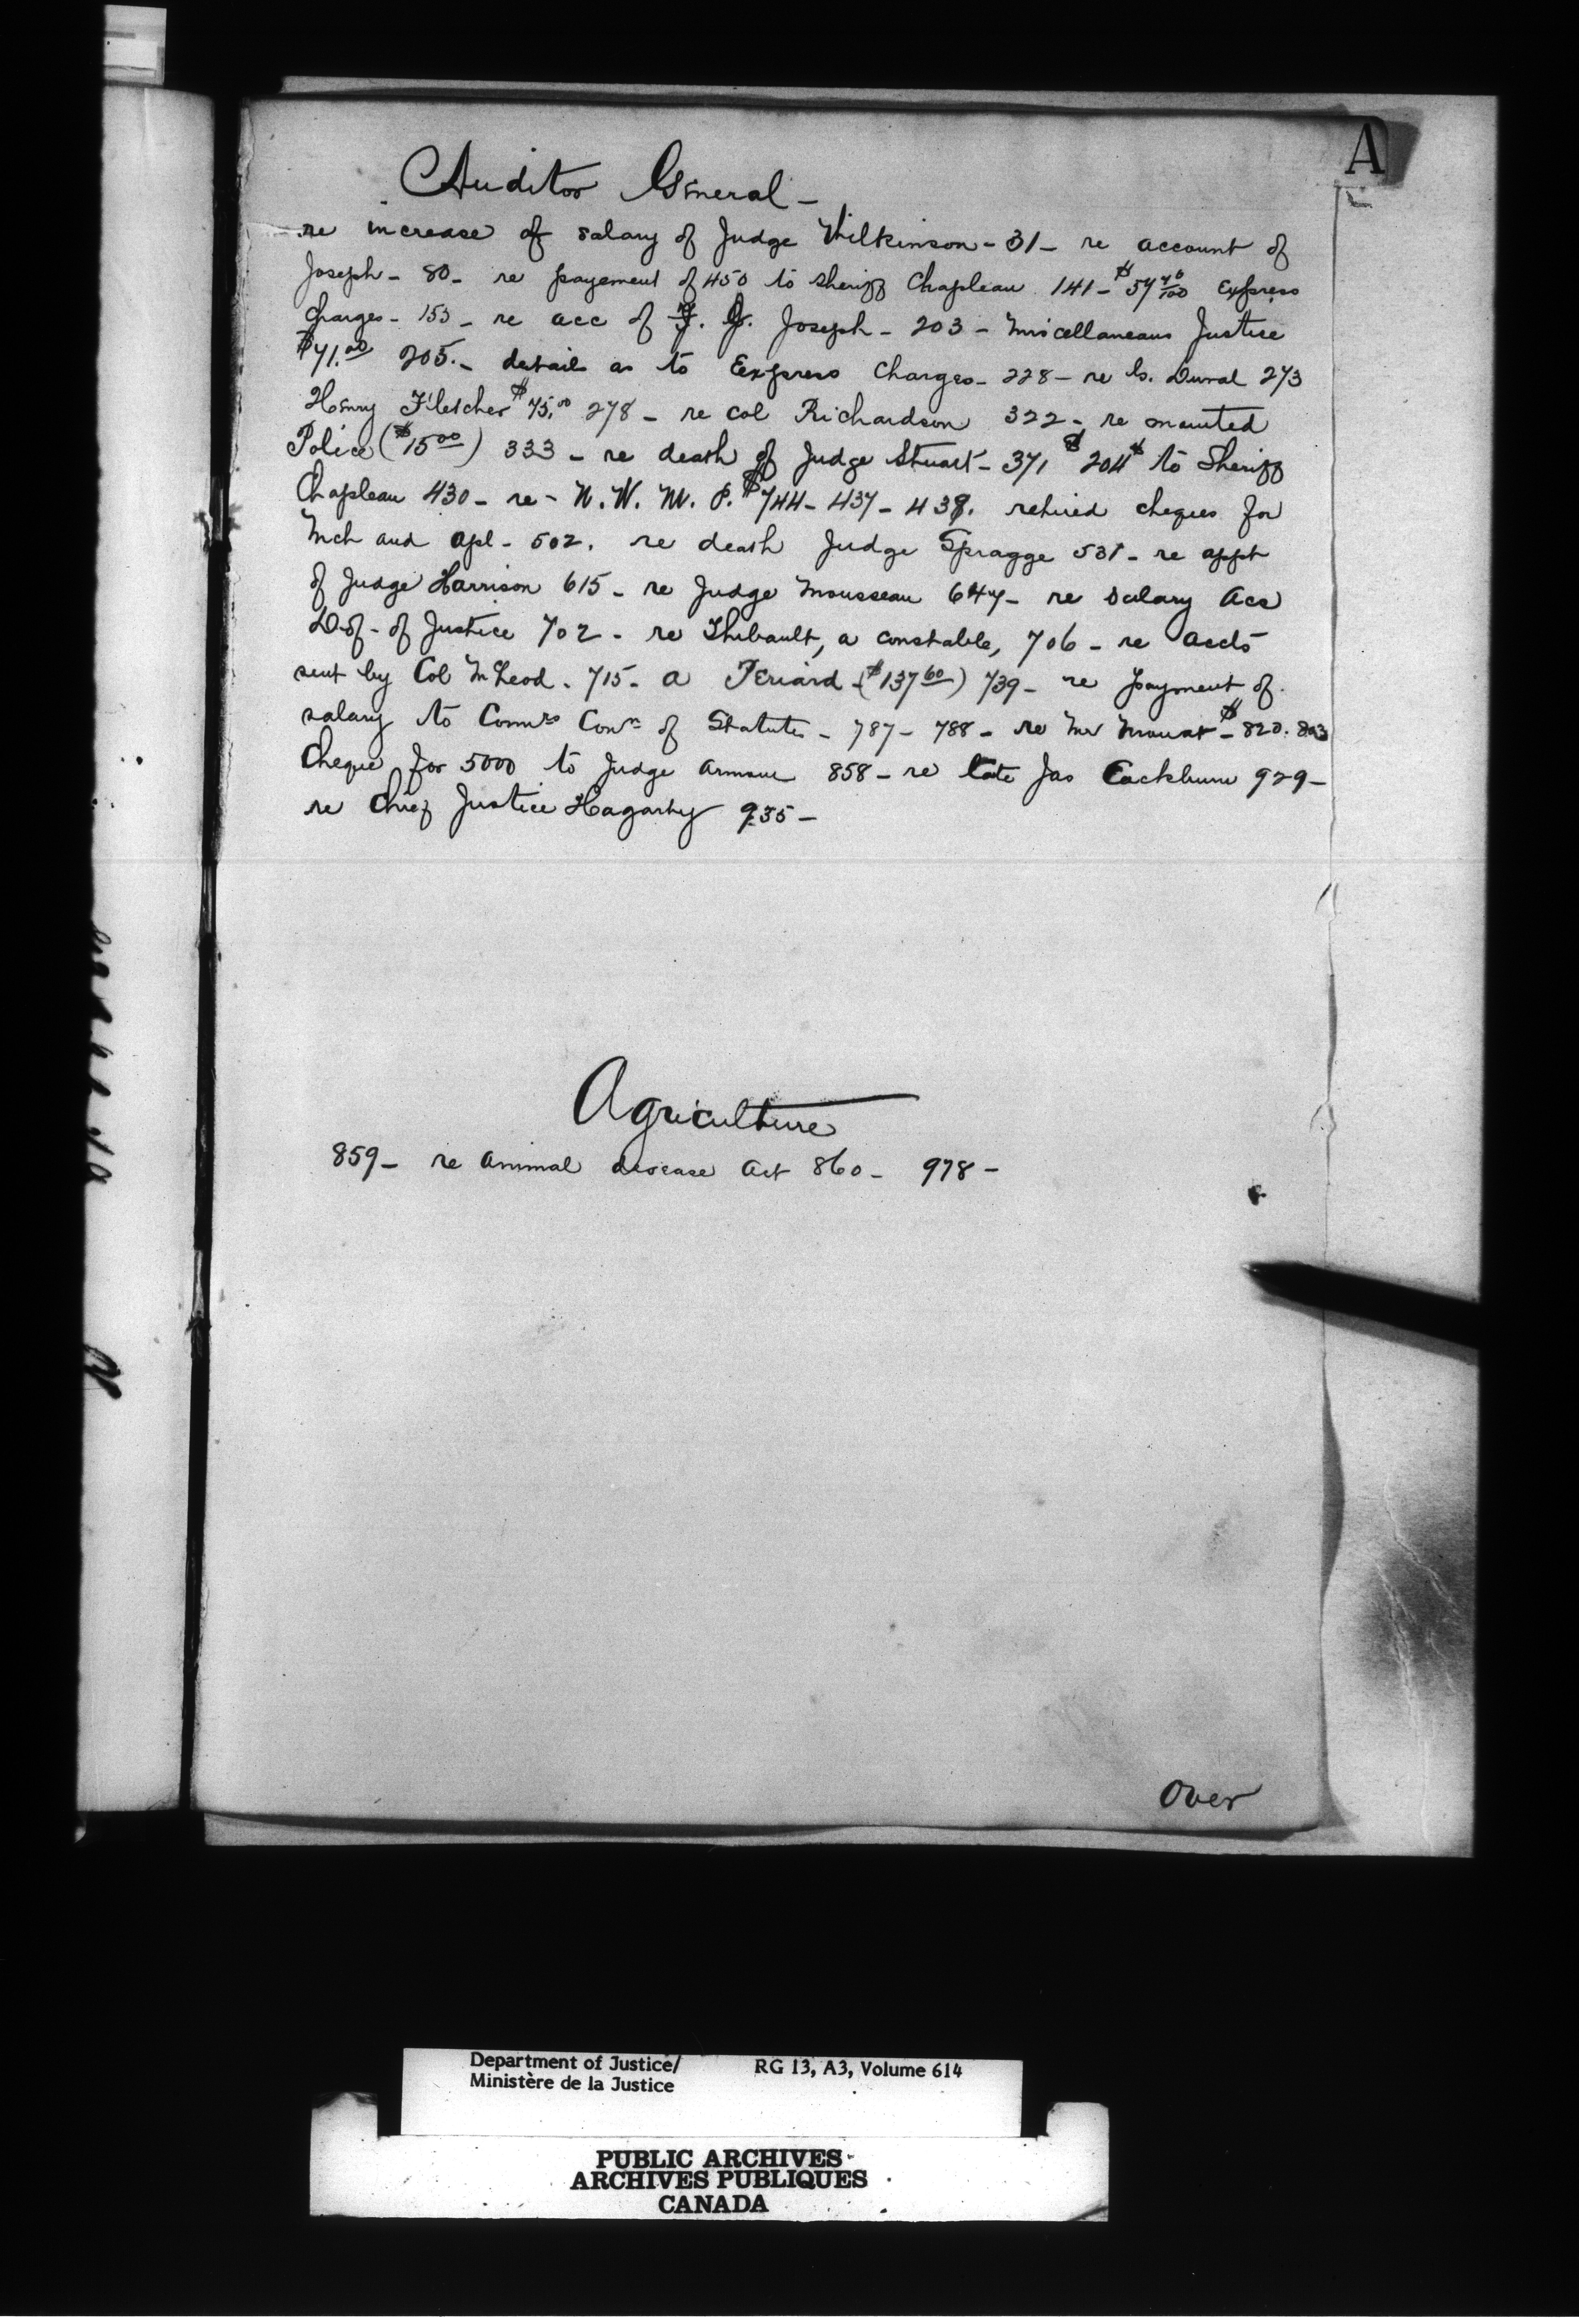 A
Auditor General -
re increase of salary of Judge Wilkinson - 31 - re account of
Joseph - 80 - re payement of 450 to Sheriff Chapleau 141 - $57 70/100 Express
Charges - 153 - re acc of J. G. Joseph - 203 - Miscellaneous Justice
$71.00 205. - details as to Express Charges - 228 - re Duval 273
Henry Fletcher $75.00 278 - re Col Richardson 322 - re mounted
Police ($15 00) 333 - re death of Judge Stuart - 371 $204 to Sheriff
Chapleau 430 - re - N. W. M. P. $744 - 437 - 438. retired cheques for
Mch and Apl - 502. re death Judge Spragge 531 - re appt
of Judge Harrison 615 - re Judge Mousseau 647 - re Salary Acs
D. of - of Justice 702 - re Thibault, a constable, 706 - re accts
sent by Col McLeod - 715 - A Periard - ($137 60) 739 - re payment of
salary to Comrs Con of Statutes - 787 - 788 - re Mr Mowat - $820. 823
Cheque for 5000 to Judge Armour 858 - re late Jas Cockburn 929 -
re Chief Justice Hagarty 935 -
Agriculture
859 - re Animal disease Act 860 - 978 -
Over
Department of Justice/ RG 13, A3, Volume 614
Ministère de la Justice
PUBLIC ARCHIVES
ARCHIVES PUBLIQUES
CANADA